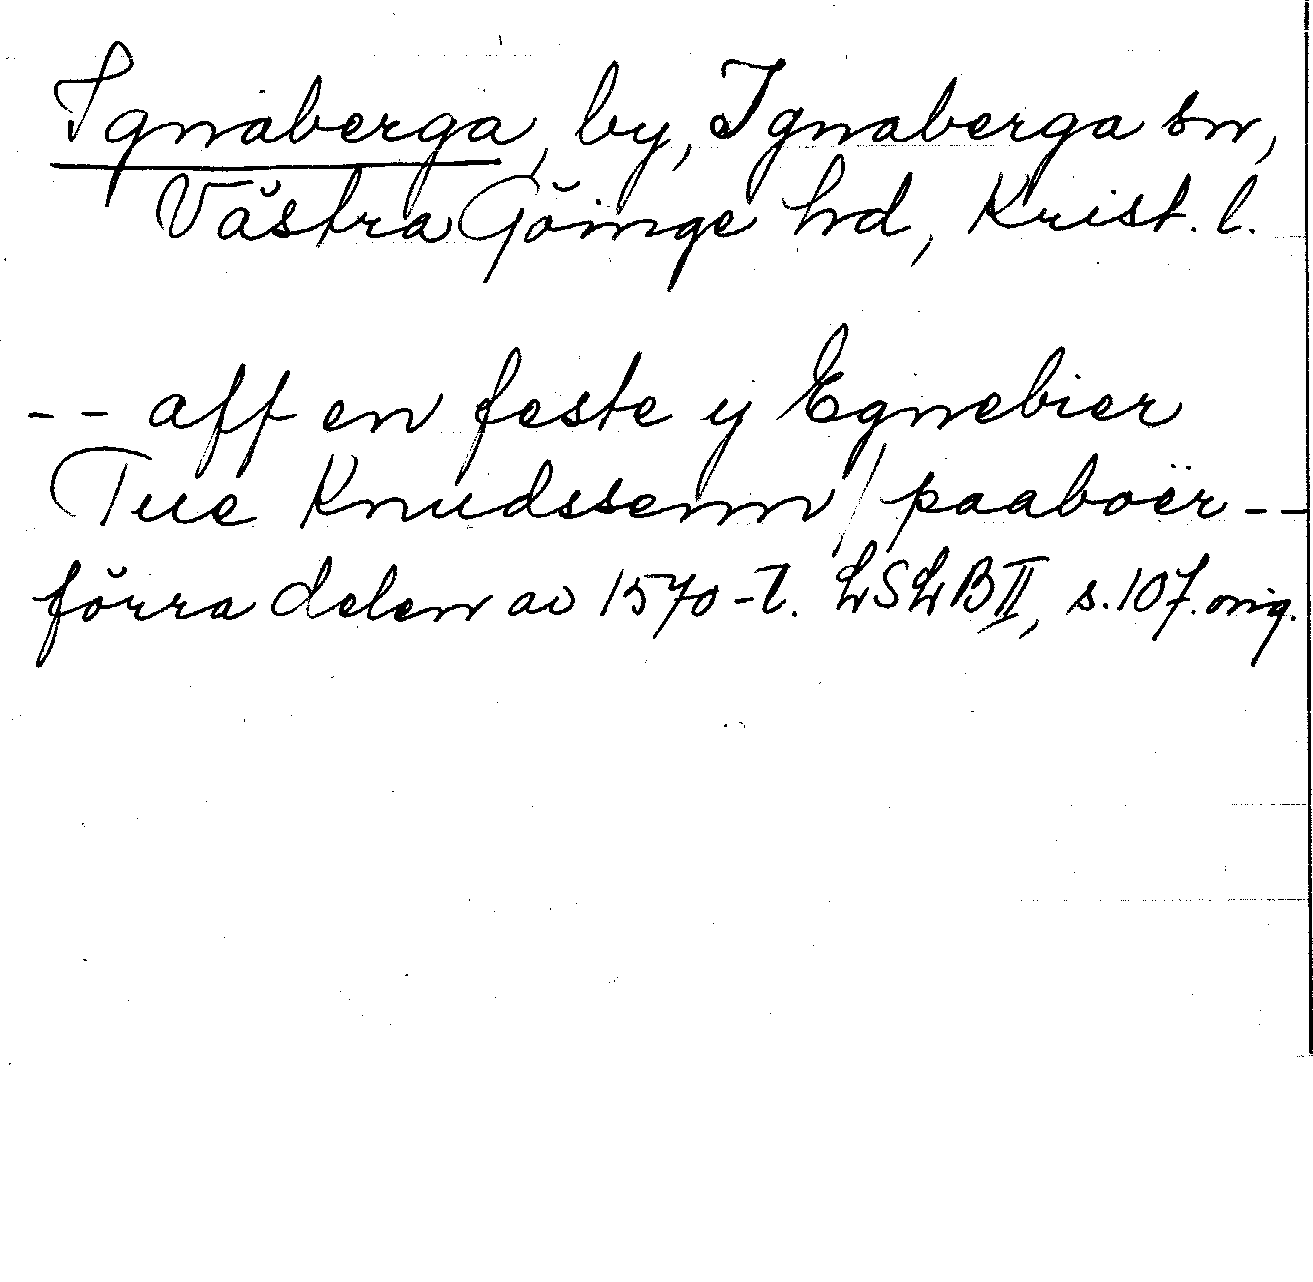 Ignaberga, by, Ignaberga sn,
Västra Göinge hd, Krist. l.
-- aff en feste y Egnebier
Tue Knudssenn / paaboër --
förra delen av 1570-t. LSLB II, s. 107. orig.